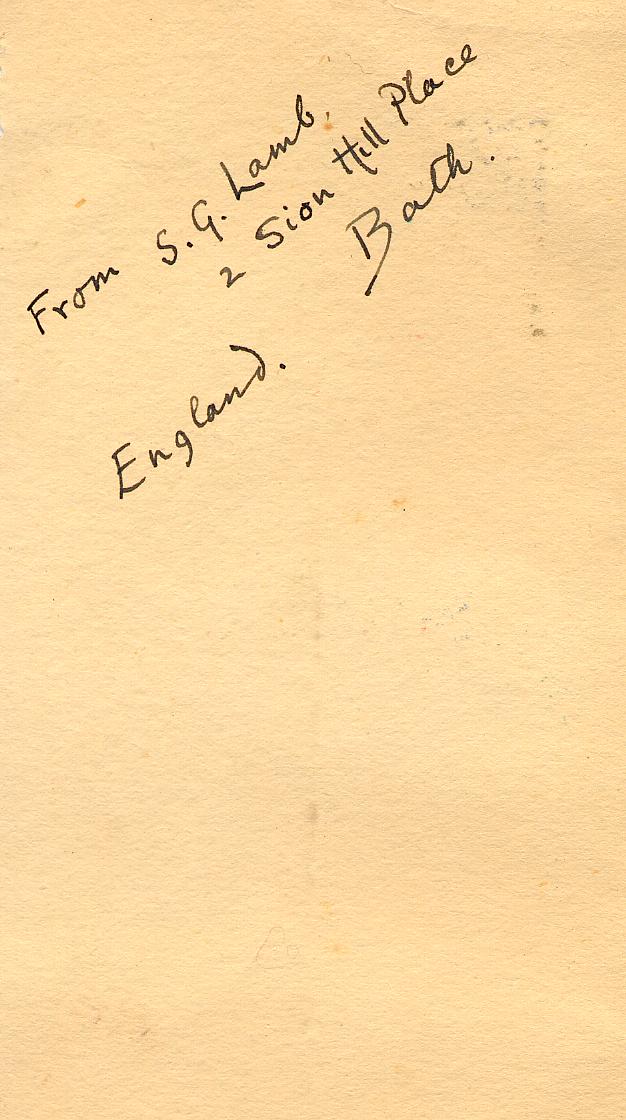 From S. G. Lamb,
2 Sion Hill Place
Bath.
England.